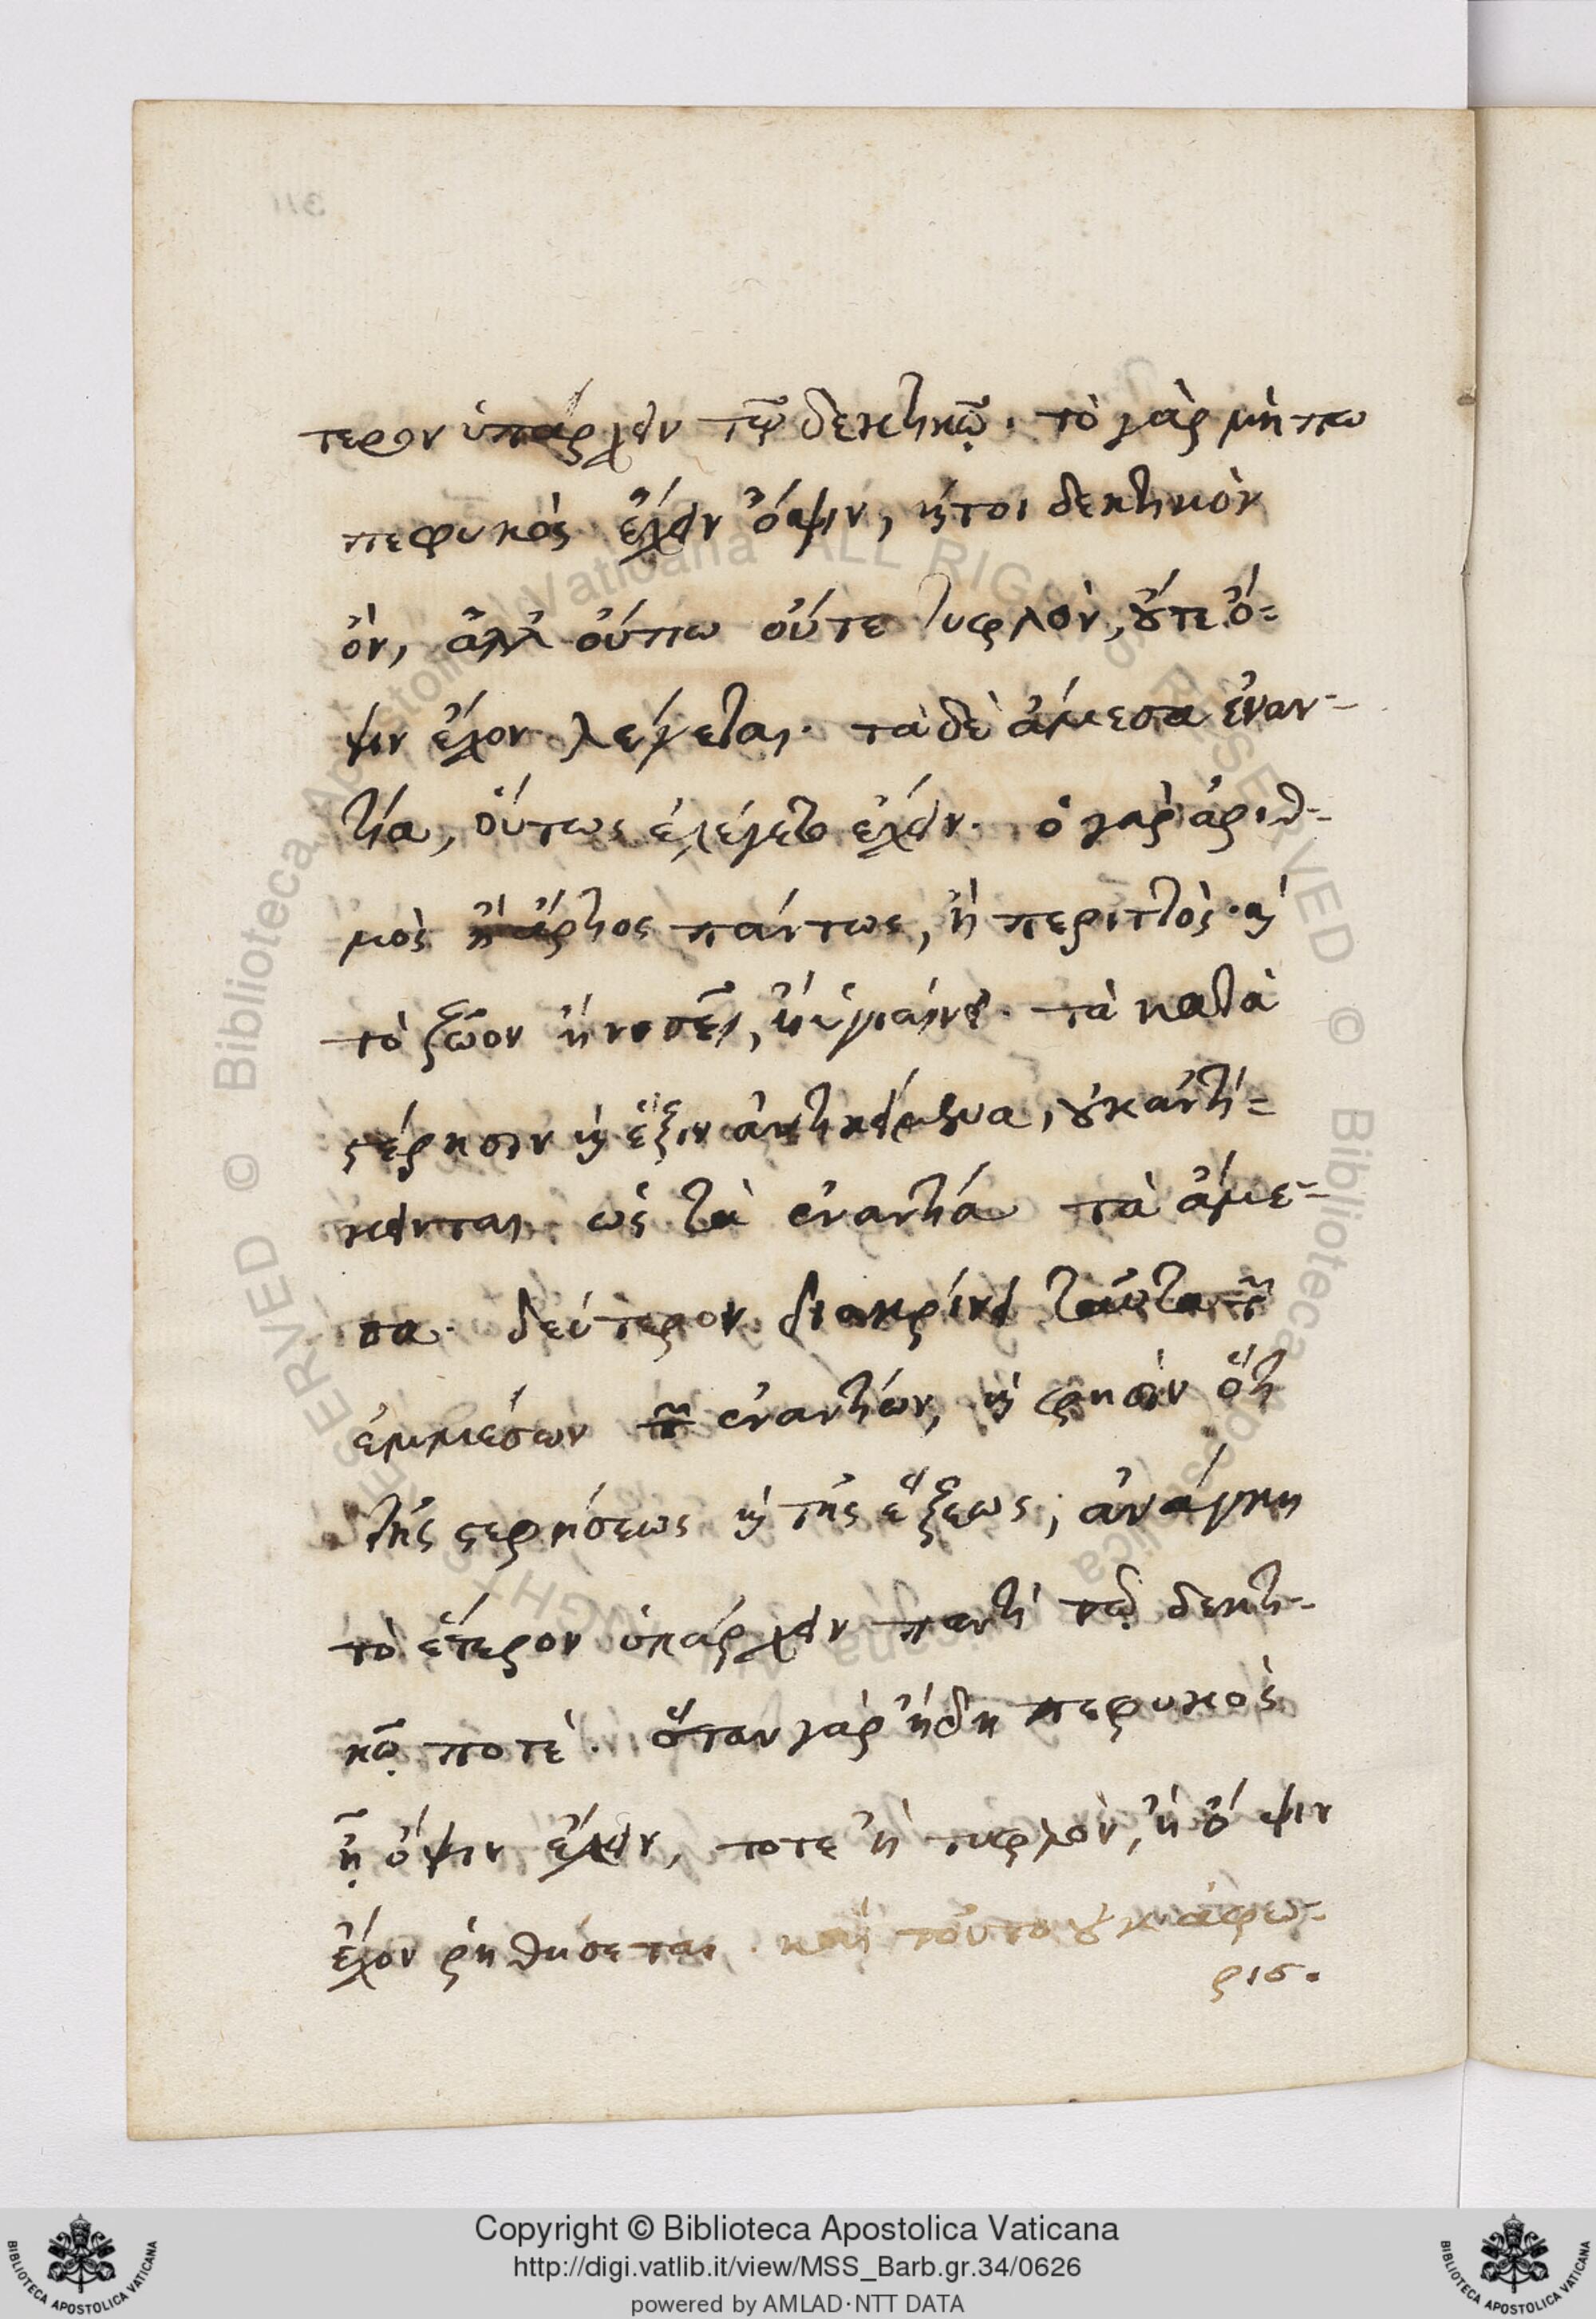 τερον ὑπάρχειν τῷ δεκτικῷ. τὸ γὰρ μήπω
πεφυκὸς ἔχειν ὄψιν, ἤτοι δεκτικὸν
ὂν, ἀλλ οὔπω οὔτε τυφλὸν, οὔτε ὄ-
ψιν ἔχον λέγεται. τὰ δὲ ἄμεσα ἐναν-
τία, οὕτως ἐλέγετο ἔχειν. ὁ γὰρ ἀριθ-
μὸς ἢ ἄρτιος πάντως, ἢ περιττὸς. καὶ
τὸ ζῶον ἢ νοσεῖ, ἢ ὑγιαίνει. τὰ κατὰ
στέρησιν καὶ ἕξιν ἀντικείμενα, οὐκ ἀντί-
κεινται ὡς τὰ ἐναντία τὰ ἄμε-
σα. δεύτερον διακρίνει ταῦτα τῶν
ἐμμέσων τῶν ἐναντίων, καὶ φησὶν ὅτι
τῆς στερήσεως καὶ τῆς ἕξεως, ἀνάγκη
τὸ ἕτερον ὑπάρχειν παντὶ τῷ δεκτι-
κῷ ποτὲ. ὅταν γὰρ ἤδη πεφυκὸς
ᾖ ὄψιν ἔχειν, τοτε ἢ τυφλὸν, ἢ ὄψιν
ἔχον ῥηθήσεται. καὶ τοῦτο οὐκ ἀφω-
ρισ.
311
© Biblioteca Apostolica Vaticana ALL RIGHTS RESERVED
Copyright © Biblioteca Apostolica Vaticana
http://digi.vatlib.it/view/MSS_Barb.gr.34/0626
powered by AMLAD·NTT DATA
BIBLIOTECA APOSTOLICA VATICANA
BIBLIOTECA APOSTOLICA VATICANA